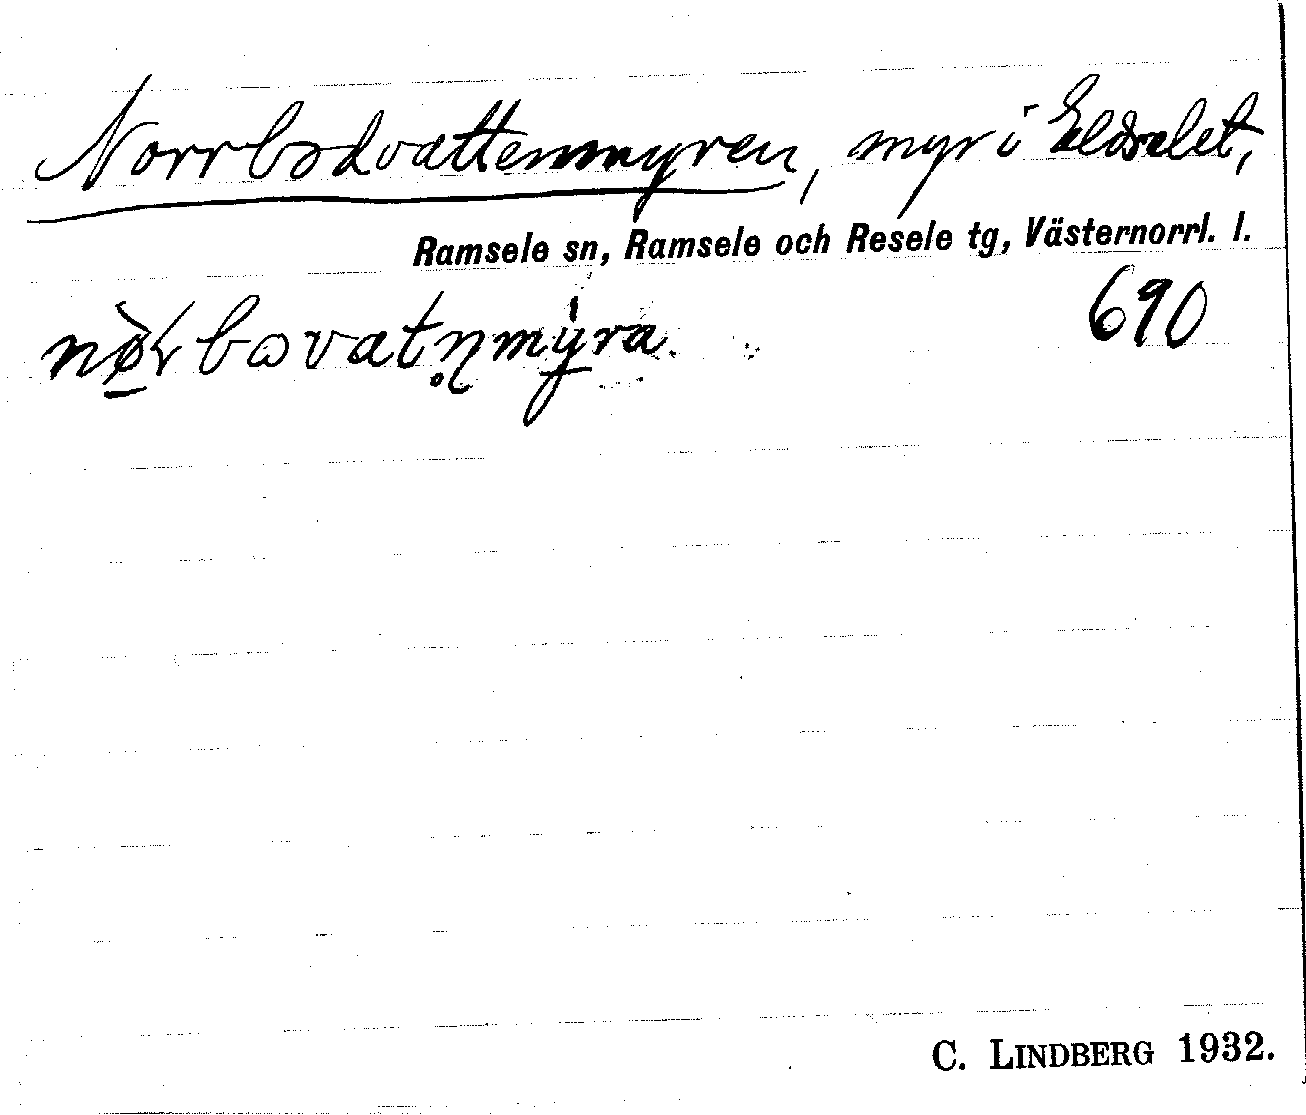 Norrbodvattenmyren, myr i Eldselet,
Ramsele sn, Ramsele och Resele tg, Västernorrl. l.
690
C. LINDBERG 1932.